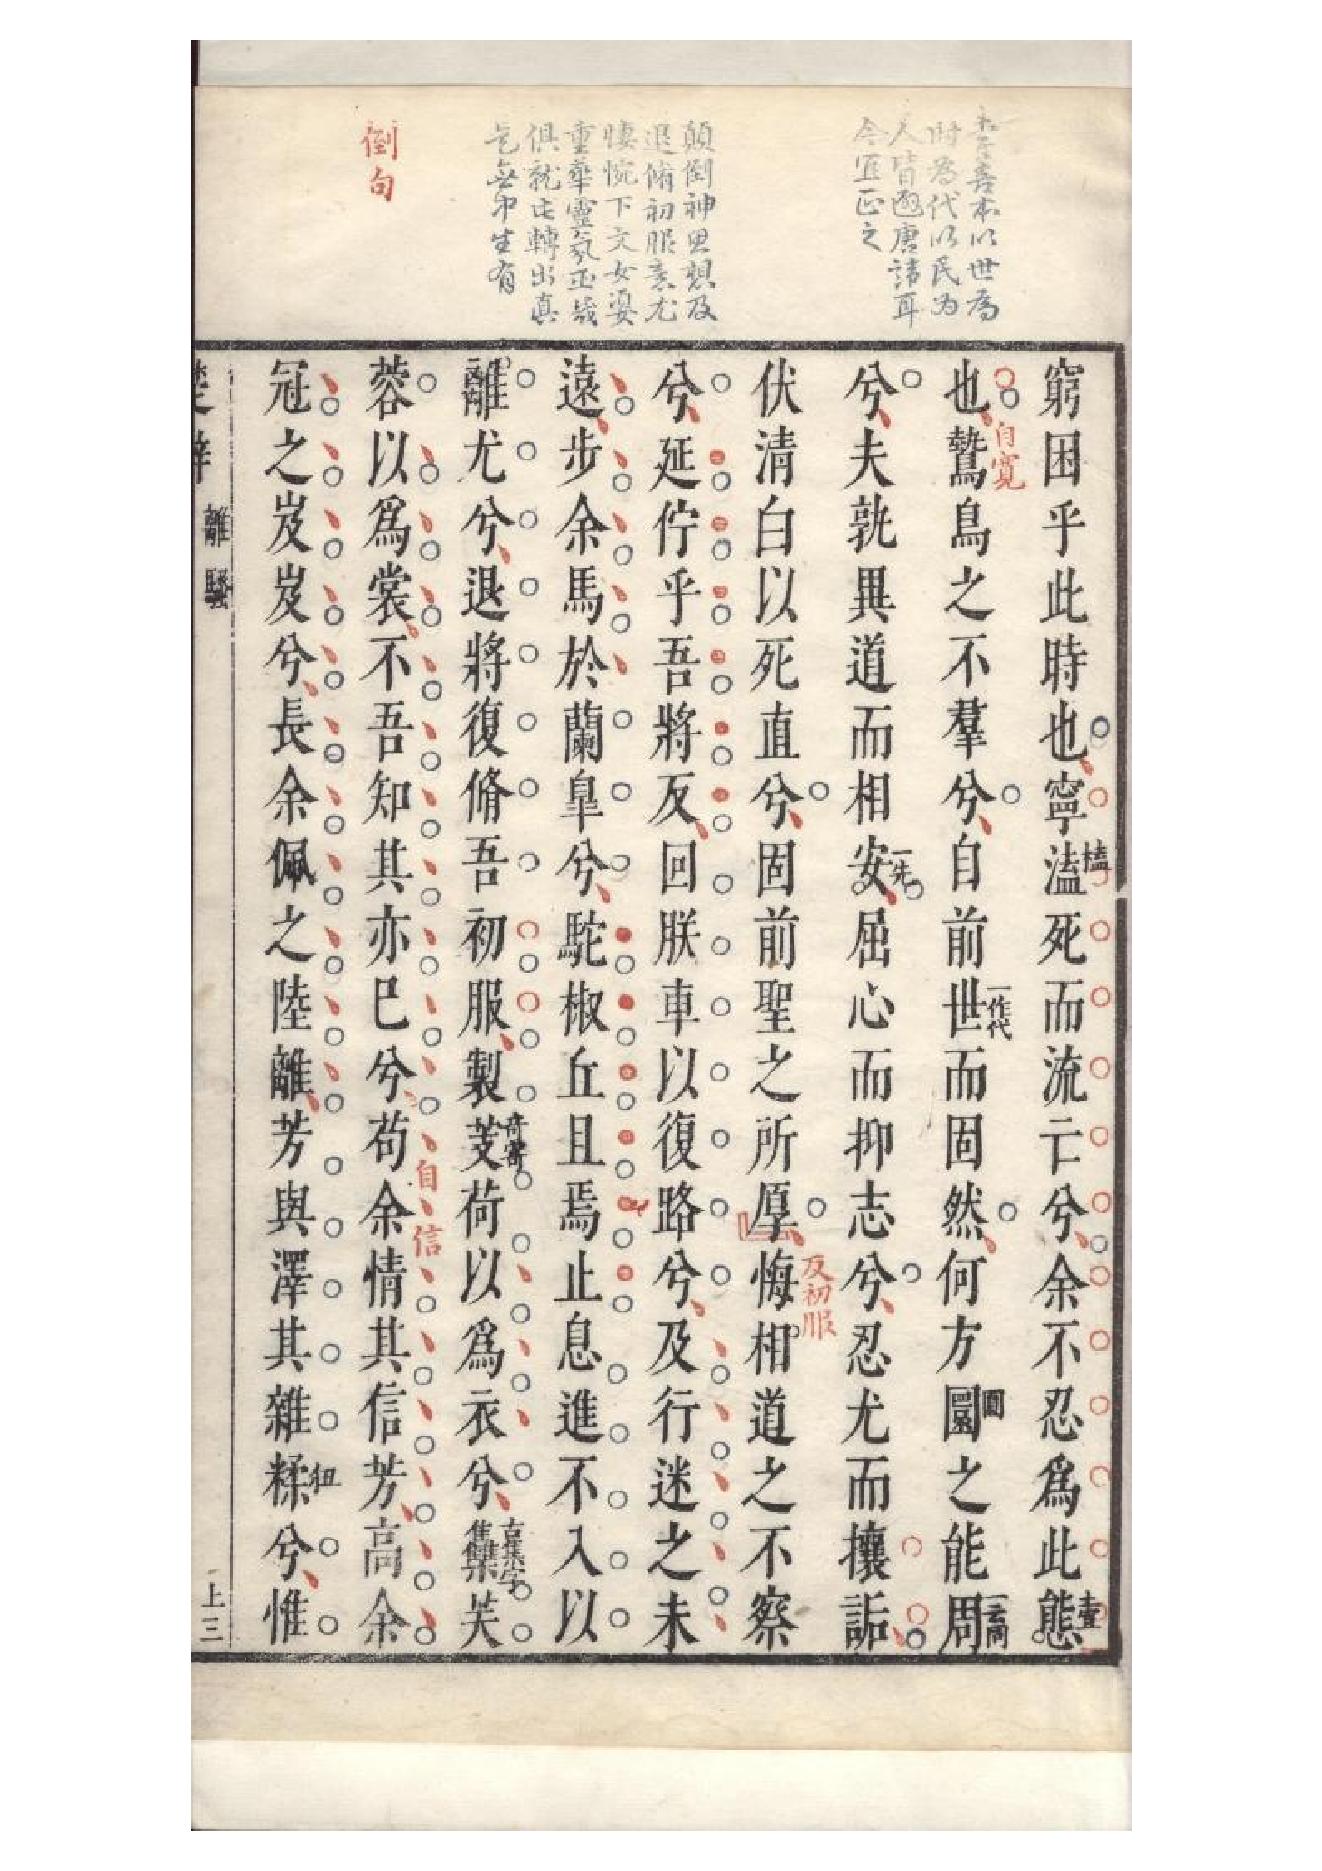 李善本以世為
時為代以民為
人皆避唐諱耳
今宜正之
顛倒神思想及
退脩初服意尤
悽惋下文女嬃
重華靈氛巫咸
俱就此轉出真
無中生有
倒句
窮困乎此時也寧溘榼死而流亡兮余不忍為此態
也自寬鷙鳥之不羣兮自前世一作代而固然何方圜圓之能周一云同
兮夫孰異道而相安一先屈心而抑志兮忍尤而攘詬
伏清白以死直兮固前聖之所厚反初服悔相道之不察
兮延佇乎吾將反回朕車以復路兮及行迷之未
遠步余馬於蘭皐兮馳椒丘且焉止息進不入以
離尤兮退將復脩吾初服製芰荷以為衣兮雧古集字芙
蓉以為裳不吾知其亦已兮苟余情其信芳自信高余
冠之岌岌兮長余佩之陸離芳與澤其雜糅狃兮惟
楚辭 離騷 上三